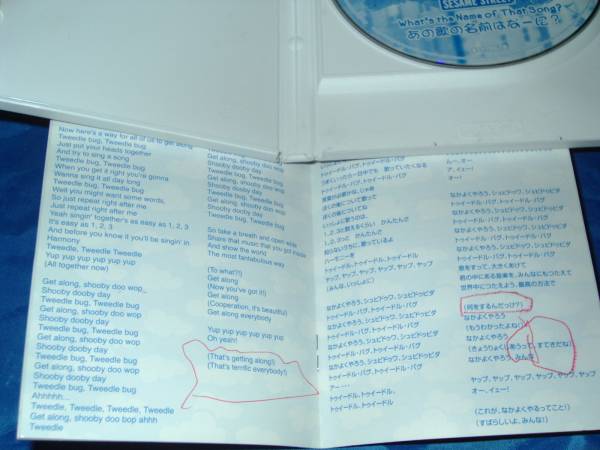 SESAME STREET
What's the Name of That Song?
あの歌の名前はなーに?
Now here's a way for all of us to get along
Tweedle bug, Tweedle bug
Just put your heads together
And try to sing a song
Tweedle bug, Tweedle bug
When you get it right you're gonna
Wanna sing it all day long
Tweedle bug, Tweedle bug
Well you might want some words,
So just repeat right after me
Just repeat right after me
Yeah singin' together's as easy as 1, 2, 3
It's easy as 1, 2, 3
And before you know it you'll be singin' in
Harmony
Tweedle, Tweedle, Tweedle
Yup yup yup yup yup yup
(All together now)
Get along, shooby doo wop,
Shooby dooby day
Tweedle bug, Tweedle bug
Get along, shooby doo wop
Shooby dooby day
Tweedle bug, Tweedle bug
Get along, shooby doo wop
Shooby dooby day
Tweedle bug, Tweedle bug
Get along, shooby doo wop
Shooby dooby day
Tweedle bug, Tweedle bug
Ahhhhh...
Tweedle, Tweedle, Tweedle, Tweedle
Get along, shooby doo bop ahhh
Tweedle
Get along, shooby doo wop
Shooby dooby day
Tweedle bug, Tweedle bug
Get along, shooby doo wop
Shooby dooby day
Get along, shooby doo wop
Shooby dooby day
Tweedle bug, Tweedle bug
So take a breath and open wide
Share that music that you got inside
And show the world
The most fantabulous way
(To what?!)
Get along
(Now you've got it)
Get along
(Cooperation, it's beautiful)
Get along everybody
Yup yup yup yup yup yup
Oh yeah!
(That's getting along!)
(That's terrific everybody!)
トゥイードル・バグ、トゥイードル・バグ
トゥイードル・バグ、トゥイードル・バグ
ぼくの後について歌って
ぼくの後についてね
1、2、3と数えるくらい かんたんさ
1、2、3って かんたんさ
ハーモニーを
トゥイードル、トゥイードル、トゥイードル
ヤップ、ヤップ、ヤップ、ヤップ、ヤップ、ヤップ
(みんな、いっしょに)
なかよくやろう、シュビドゥワ、シュビドゥビダ
トゥイードル・バグ、トゥイードル・バグ
なかよくやろう、シュビドゥワ、シュビドゥビダ
トゥイードル・バグ、トゥイードル・バグ
なかよくやろう、シュビドゥワ、シュビドゥビダ
トゥイードル・バグ、トゥイードル・バグ
なかよくやろう、シュビドゥワ、シュビドゥビダ
トゥイードル・バグ、トゥイードル・バグ
アー…
トゥイードル、トゥイードル、トゥイードル
トゥイードル
ア、イェー!
オー!
なかよくやろう、シュビドゥワ、シュビドゥビダ
トゥイードル・バグ、トゥイードル・バグ
なかよくやろう、シュビドゥワ、シュビドゥビダ
トゥイードル・バグ、トゥイードル・バグ
なかよくやろう、シュビドゥワ、シュビドゥビダ
トゥイードル・バグ、トゥイードル・バグ
息をすって、大きくあけて
君の中にある音楽を、みんなにもつたえて
世界中につたえよう、最高の方法で
(何をするんだっけ?)
なかよくやろう
(もうわかったよね!)
なかよくやろう
(きょうりょくしあうって、すてきだね)
なかよくやろう、みんな
ヤップ、ヤップ、ヤップ、ヤップ、ヤップ、ヤップ
オー、イェー!
(これが、なかよくやるってこと!)
(すばらしいよ、みんな!)